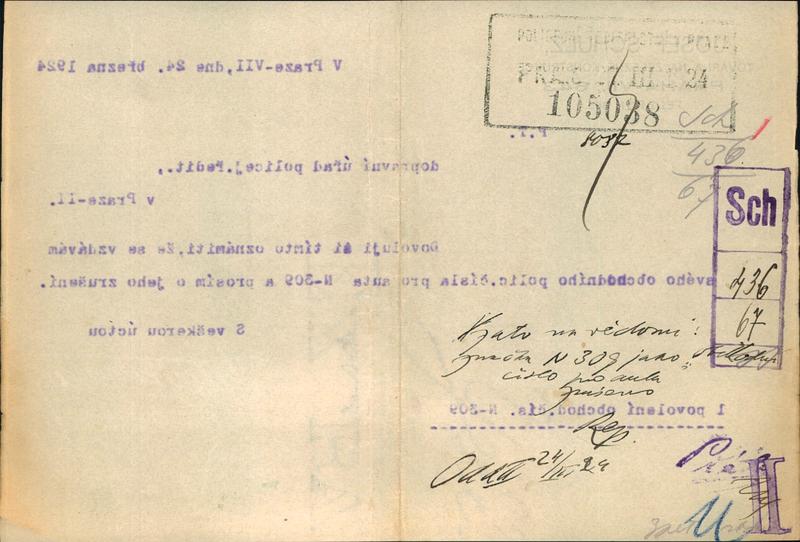 JOSEF SCHULZ
PRA
III
24
105038
8032
Sch
436
67
V Praze-VII, dne 24. března 1924
P.T.
dopravní úřad policej.ředit.,
v Praze-II.
Dovoluji si tímto oznámiti, že se vzdávám
svého obchodního polic.čísla pro auta N-309 a prosím o jeho zrušení.
S veškerou úctou
Sch
436
67
Vzato na vědomí!
značka N 309 jako
číslo pro auta
zrušeno
1 povolení obchod.čís. N-309
Rep.
24/III 24
II